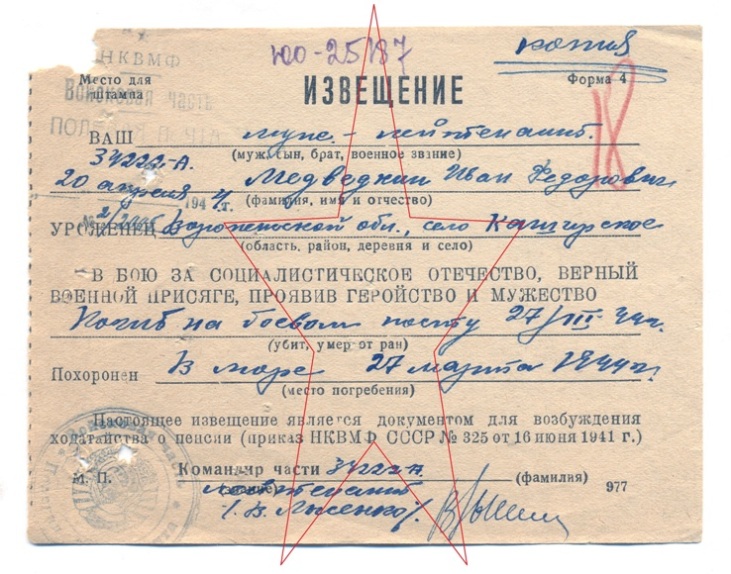 НКВМФ
Ю0-25187
копия
Место для
штампа
ИЗВЕЩЕНИЕ
Форма 4
18
Войсковая часть
ВАШ муж - лейтенант.
34222-А.
(муж, сын, брат, военное звание)
20 апреля 1944г. Медведкин Иван Федорович
(фамилия, имя и отчество)
УРОЖЕНЕЦ Воронежской обл., село Каширское
(область, район, деревня и село)
В БОЮ ЗА СОЦИАЛИСТИЧЕСКОЕ ОТЕЧЕСТВО, ВЕРНЫЙ
ВОЕННОЙ ПРИСЯГЕ, ПРОЯВИВ ГЕРОЙСТВО И МУЖЕСТВО
Погиб на боевом посту 27/III-44г.
(убит, умер от ран)
Похоронен В море 27 марта 1944г.
(место погребения)
Настоящее извещение является документом для возбуждения
ходатайства о пенсии (приказ НКВМФ СССР № 325 от 16 июня 1941 г.)
М. П.
Командир части 34222А
(фамилия) 977
лейтенант
/. В. Лысенко/.